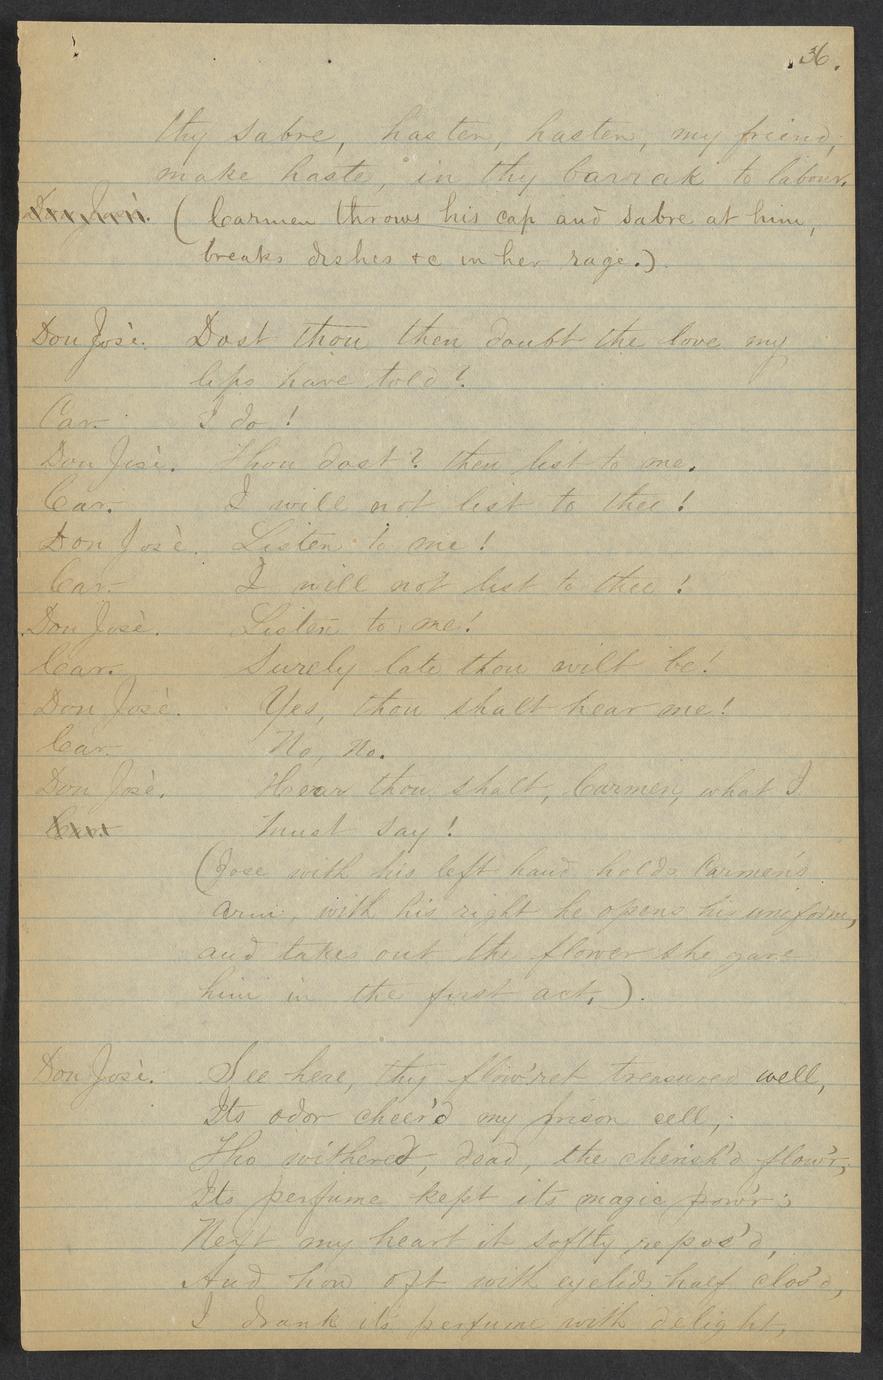 36.
thy sabre, hasten, hasten, my friend,
make haste, in thy barrak to labour.
Don José. ( Carmen throws his cap and sabre at him,
breaks dishes &c in her rage.)
Don Josè. Dost thou then doubt the love my
lips have told?
Car. I do!
Don Josè. Thou dost? then list to me.
Car. I will not list to thee!
Don Josè. Listen to me!
Car. I will not list to thee!
Don Josè. Listen to me!
Car. Surely late thou wilt be!
Don Josè. Yes, thou shalt hear me!
Car. No, no.
Don Josè. Hear thou shalt, Carmen, what I
Car. must say!
(Jose with his left hand holds Carmen's
arm, with his right he opens his uniform,
and takes out the flower she gave
him in the first act.).
Don Josè. See here, thy flow'ret treasured well,
Its odor cheer'd my prison cell,
Tho withered, dead, the cherish'd flow'r,
Its perfume kept its magic pow'r;
Next my heart it softly repos'd,
And how oft with eyelids half clos'd,
I drank its perfume with delight,